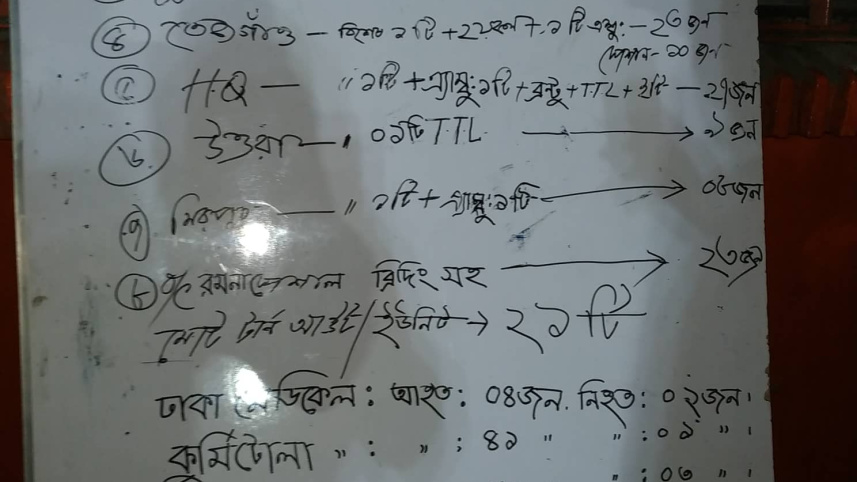 ৪ তেজগাঁও - বিশেষ ১টি + ২ ১টি এম্বু: - ২৩ জন
স্পেশাল - ১০ জন
৫ HQ - " ১টি + এ্যাম্বু: ১টি + ব্রন্টু + TTL + ২টি - ২৭জন
৬ উত্তরা - " ০১টি TTL → ৯ জন
৭ মিরপুর - " ১টি + এ্যাম্বু: ১টি → ০৬জন
৮ রমনা স্পেশাল ব্রিদিং সহ → ২৩জন
মোট টার্ন আউট/ইউনিট → ২১টি
ঢাকা মেডিকেল : আহত : ০৪জন. নিহত : ০২জন।
কুর্মিটোলা " : " : ৪১ " " : ০১ " ।
" : ০৩ " ।